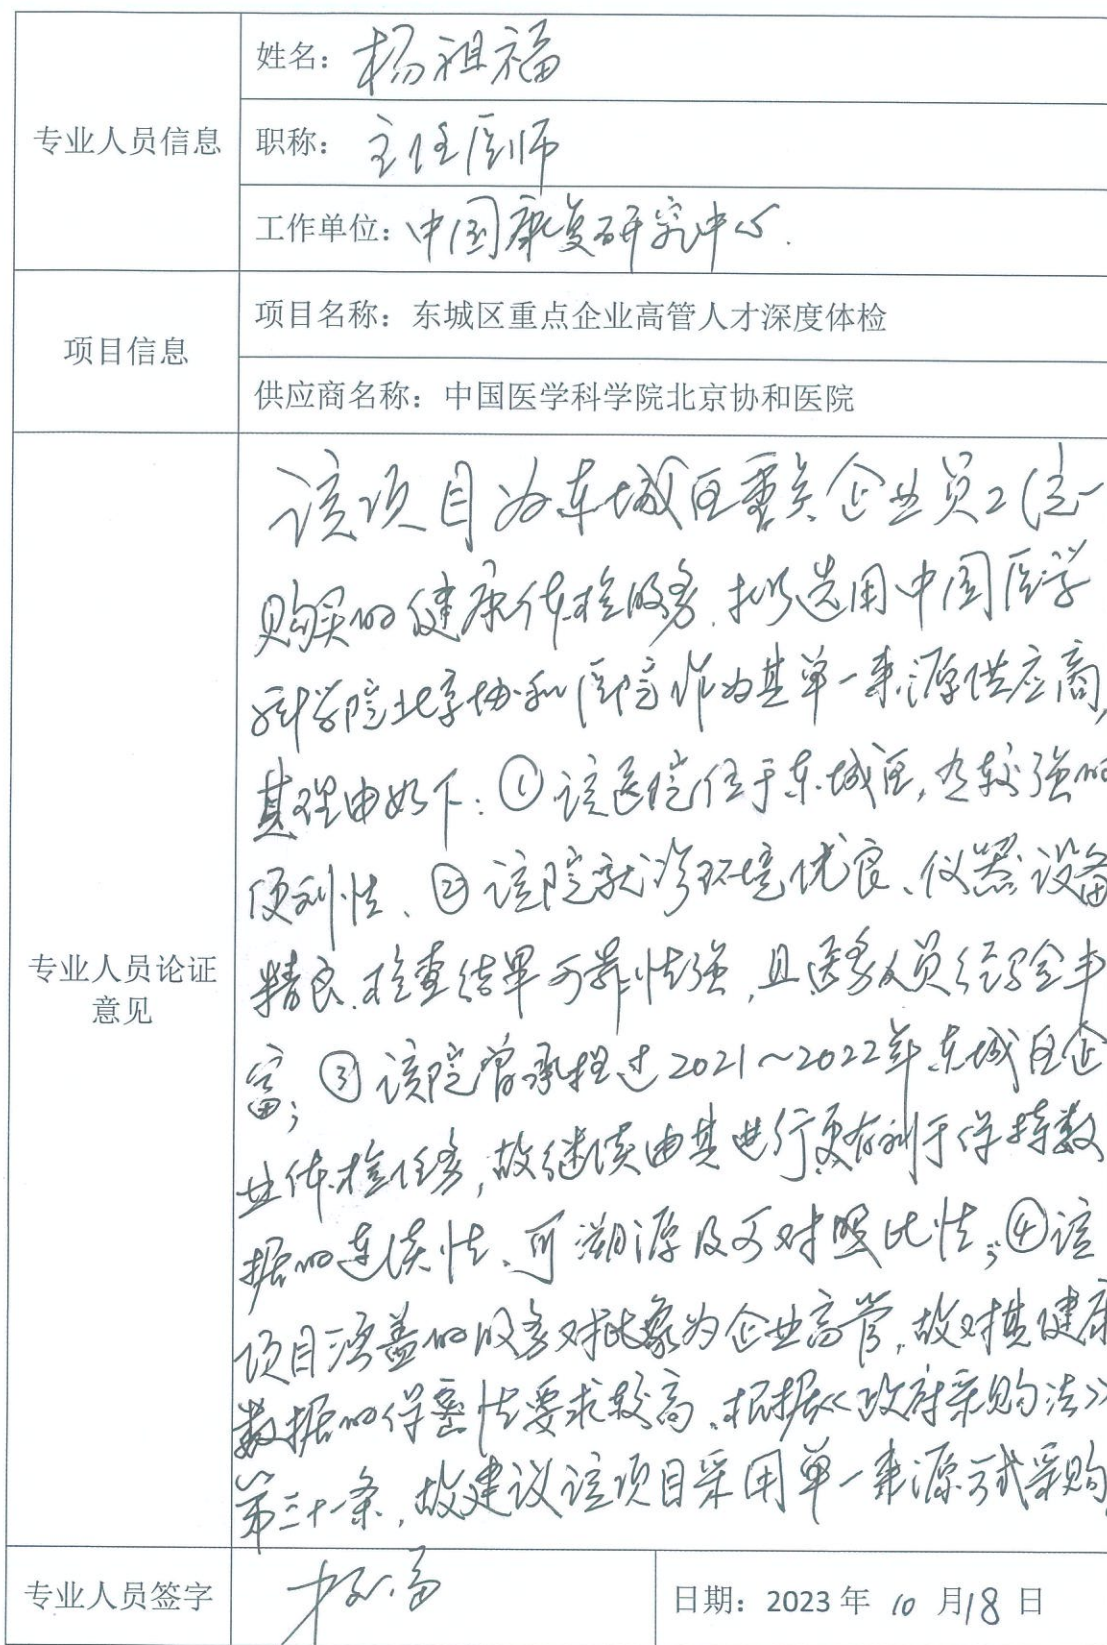 专业人员信息
姓名：杨祖福
职称：主任医师
工作单位：中国康复研究中心.
项目信息
项目名称：东城区重点企业高管人才深度体检
供应商名称：中国医学科学院北京协和医院
专业人员论证
意见
该项目为东城区重点企业员工统一
购买的健康体检服务，拟选用中国医学
科学院北京协和医院作为其单一来源供应商，
其理由如下：①该医院位于东城区，有较强的
便利性、②该院就诊环境优良、仪器设备
精良、检查结果可靠性强，且医务人员经验丰
富；③该院曾承担过2021～2022年东城区企
业体检任务，故继续由其进行更有利于保持数
据的连续性、可溯源及可对照比性；④该
项目涵盖的服务对象为企业高管，故对其健康
数据的保密性要求较高，根据《政府采购法》
第三十一条，故建议该项目采用单一来源方式采购
专业人员签字
日期：2023 年 10 月 18 日